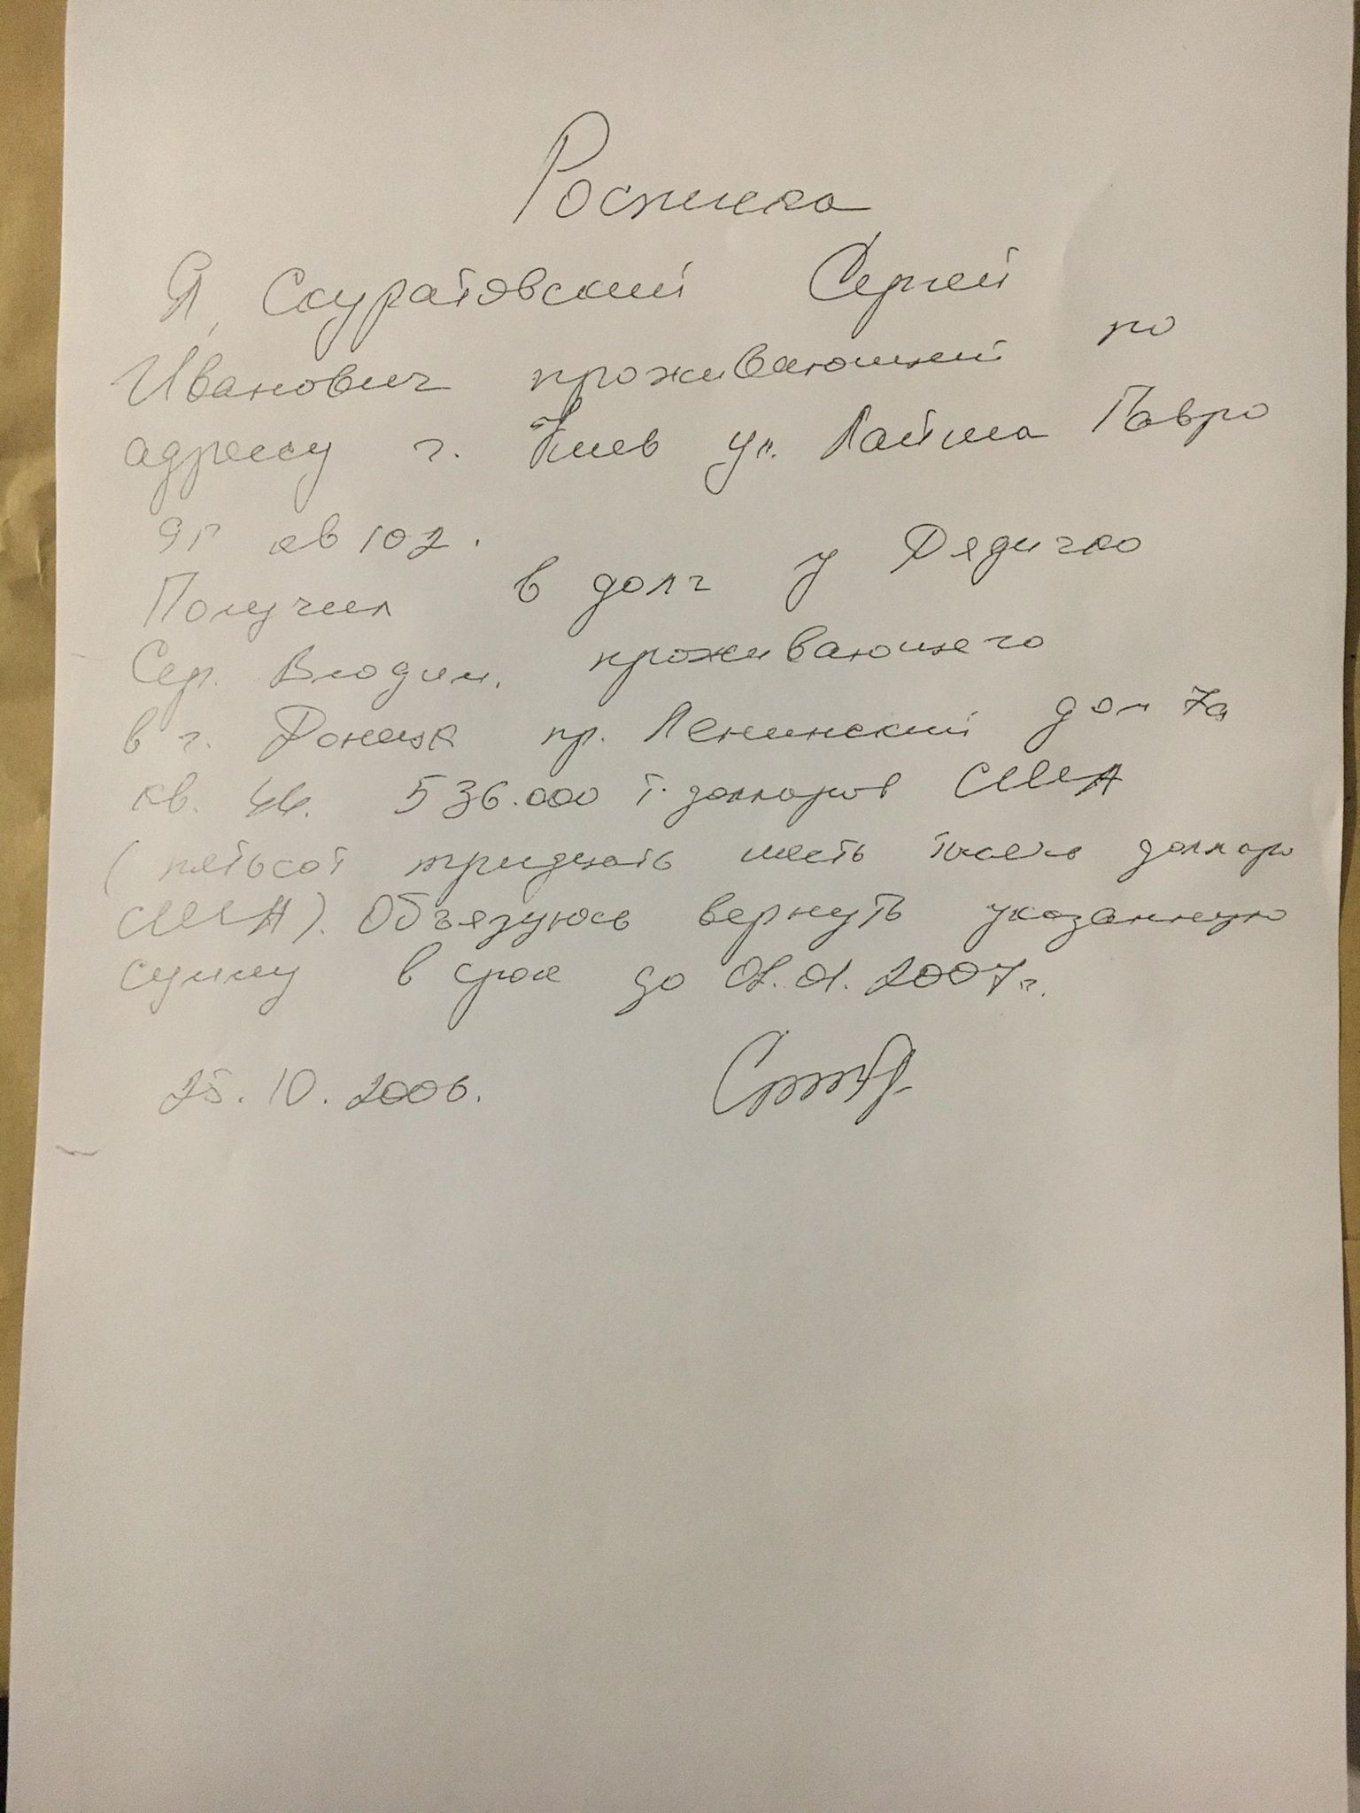 Росписка
Я, Скуратовский Сергей
Иванович проживающий по
адресу г. Киев ул. Лайоша Гавро
9г кв 102.
Получил в долг у Дядичко
Сер. Владим. проживающего
в г. Донецк пр. Ленинский дом 7а
кв. 44. 536.000 т. долларов США
(пятьсот тридцать шесть тысяч доллары
США). Объязуюсь вернуть указанную
сумму в срок до 01.01.2007г.
25.10.2006.